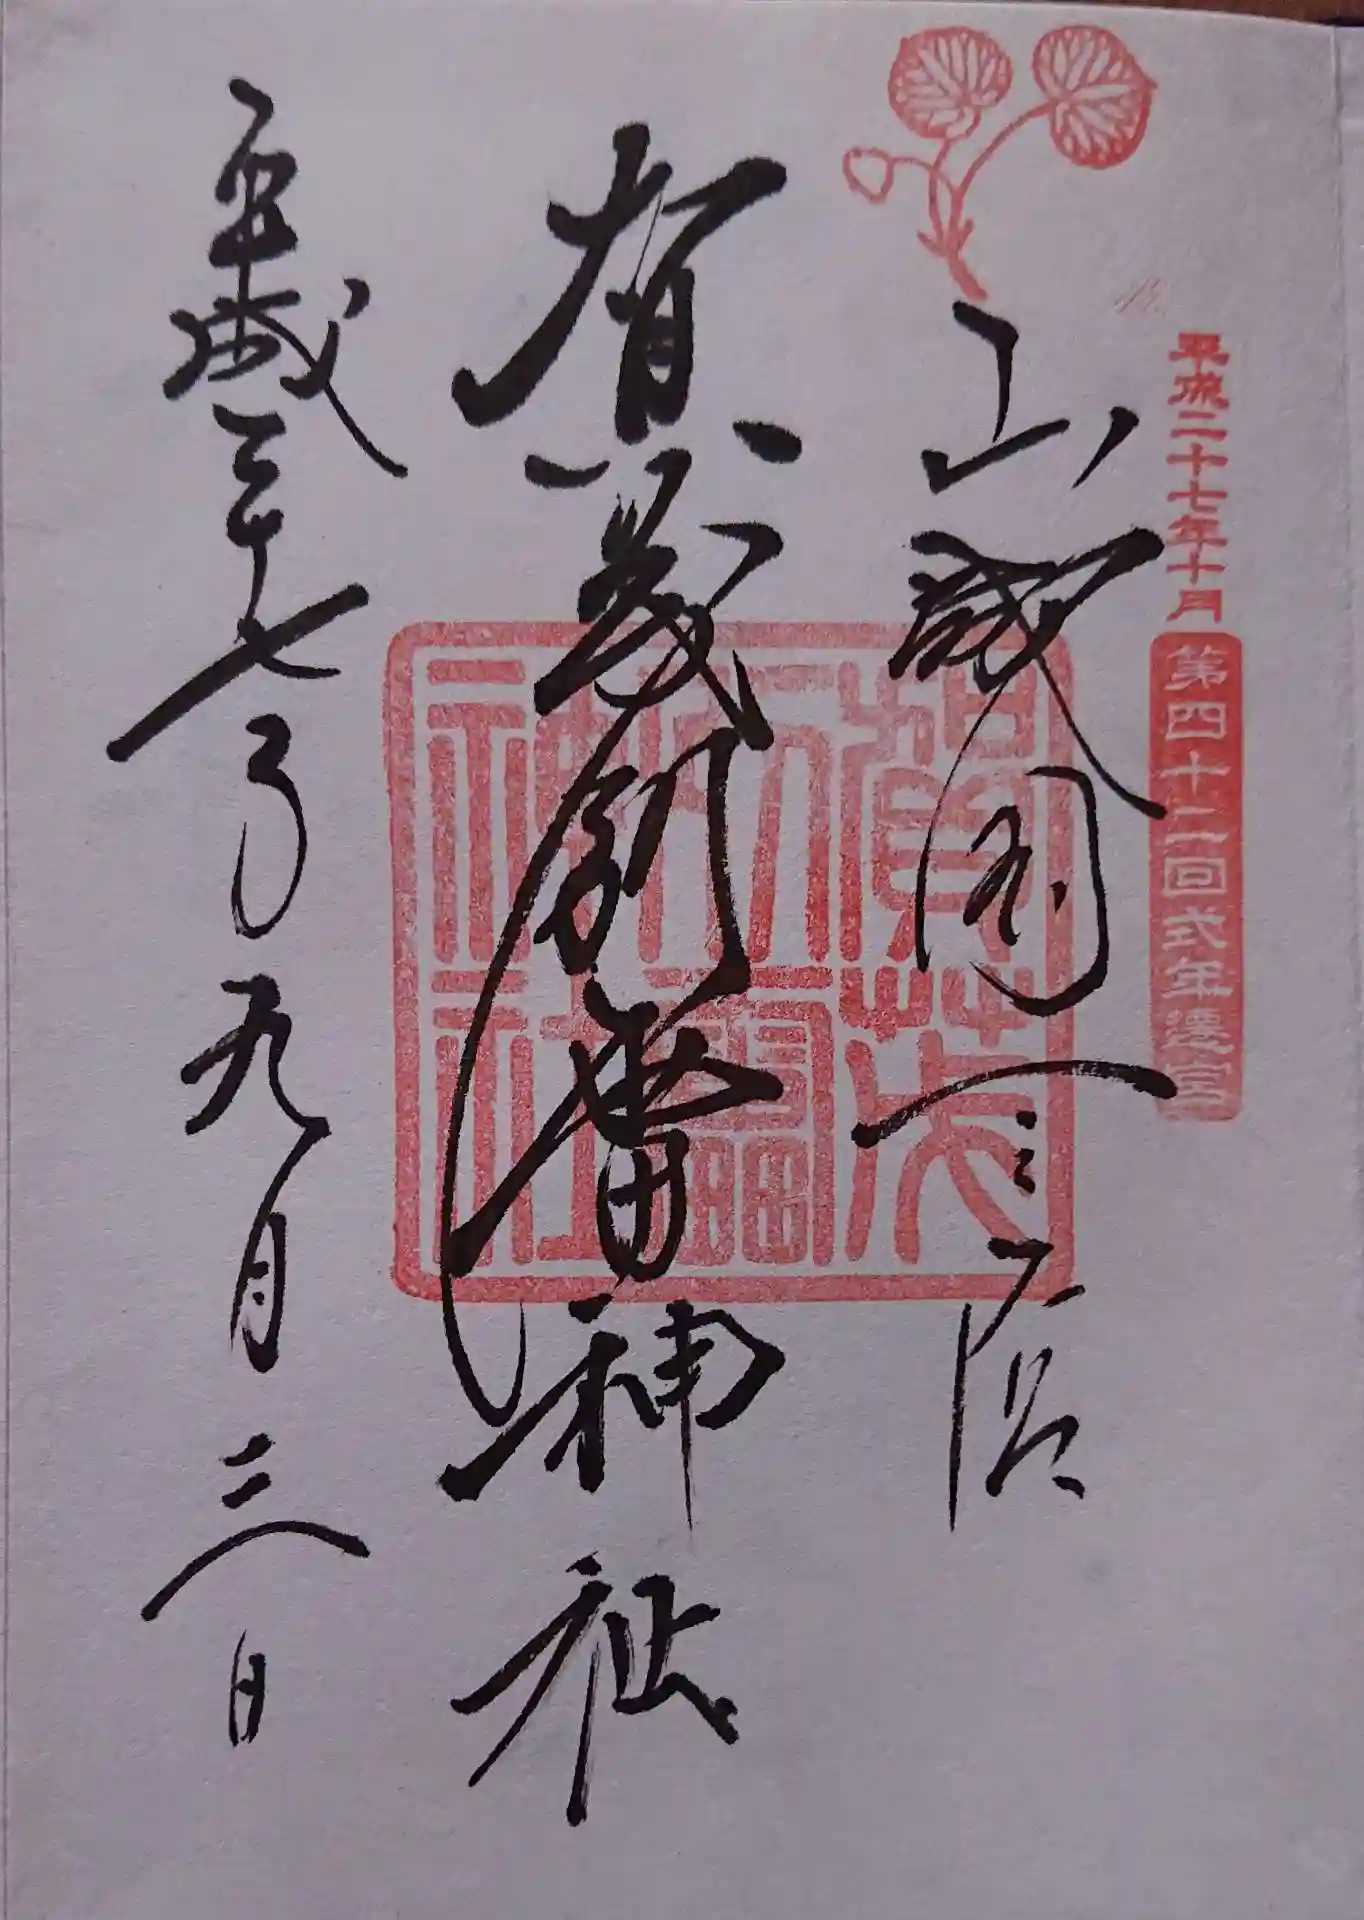 平成二十七年十月 第四十二回式年遷宮
山城国一之宮
賀茂別雷神社
賀茂別雷神社
平成二十七年九月三日